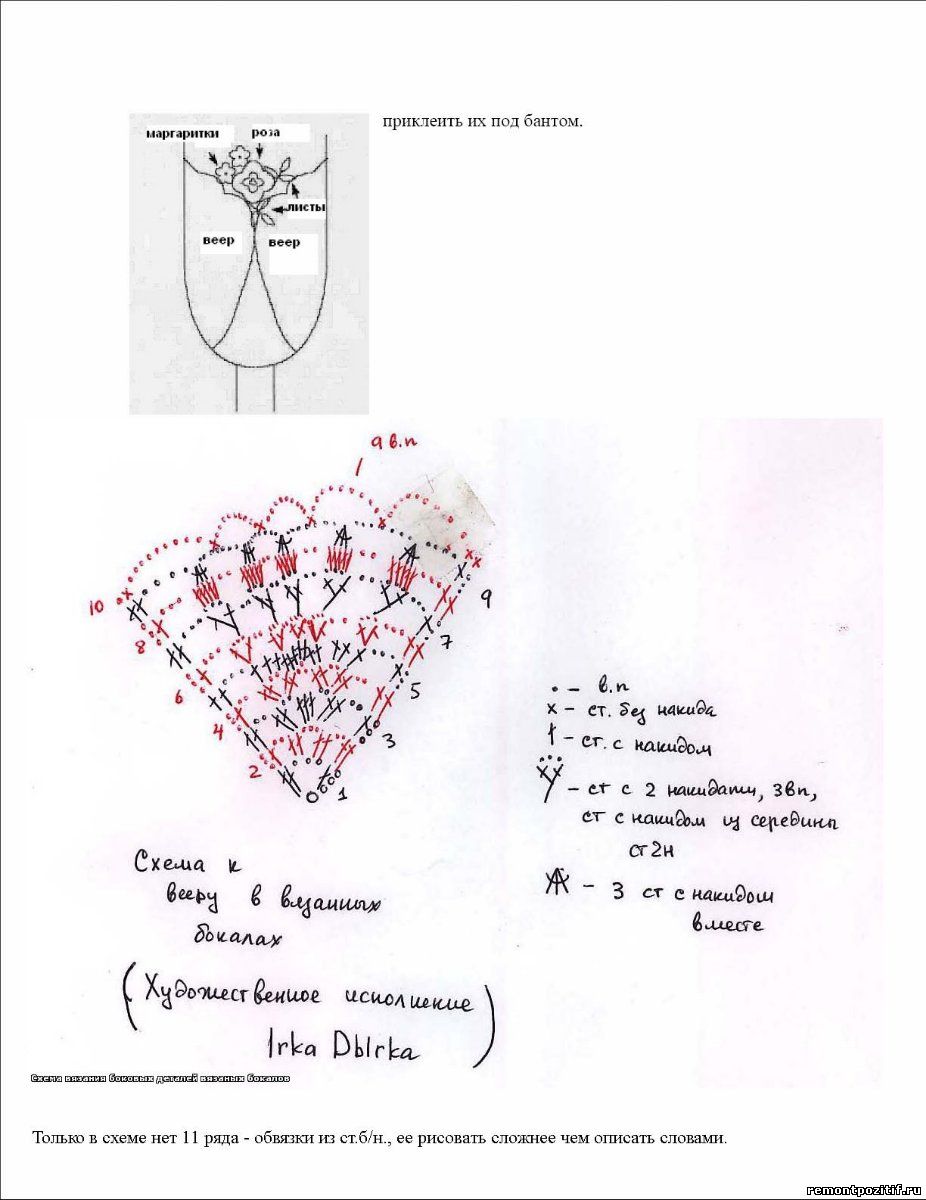 приклеить их под бантом.
маргаритки
роза
листы
веер
веер
9 в.п
10
8
6
4
2
9
7
5
3
1
• – в.п
x – ст. без накида
† – ст. с накидом
– ст с 2 накидами, 3 вп,
ст с накидом из середины
ст 2н
– 3 ст с накидом
вместе
Схема к
вееру в вязанных
бокалах
(Художественное исполнение
Irka Dblrka)
Схема вязания боковых деталей вязаных бокалов
Только в схеме нет 11 ряда - обвязки из ст.б/н., ее рисовать сложнее чем описать словами.
remontpozitif.ru